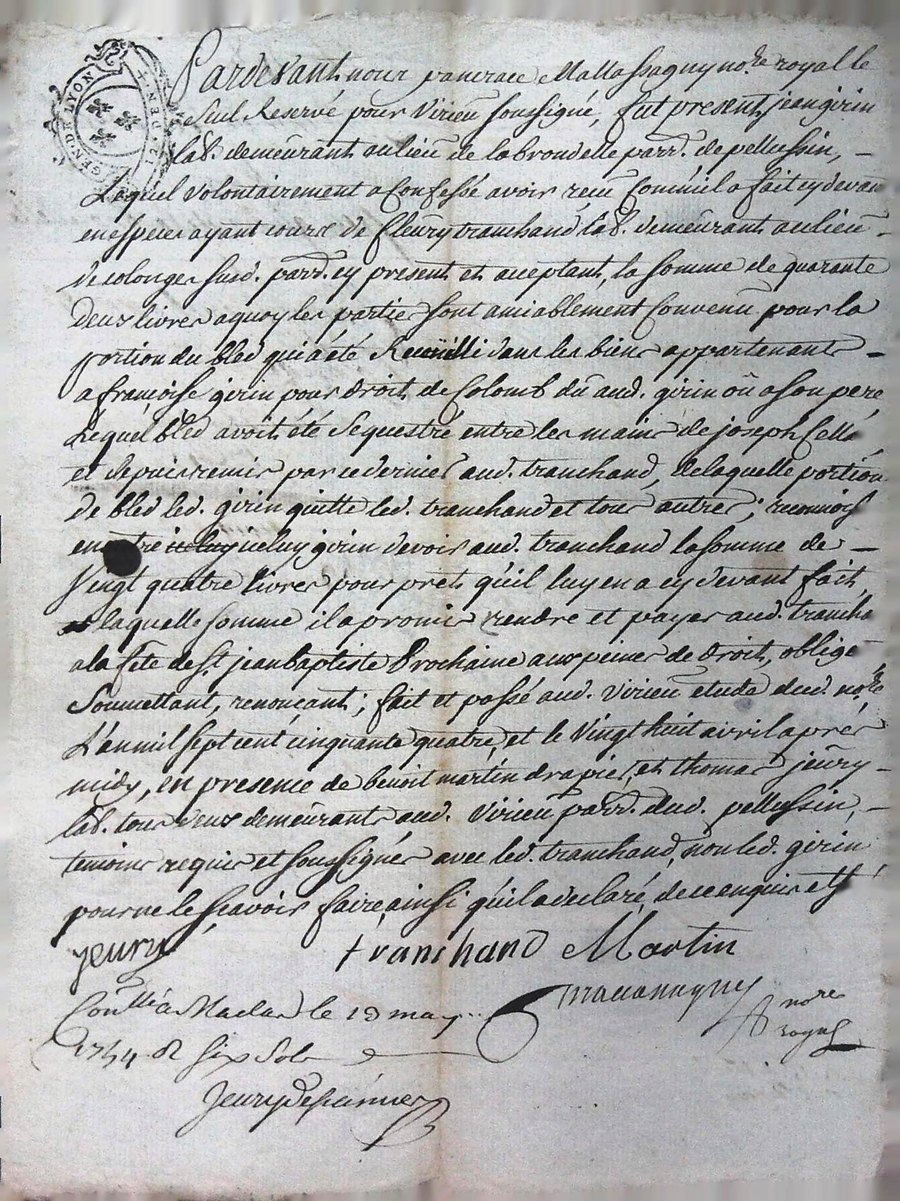 GEN. DE LYON
Pardevant nous pancrace Mattassagny no.re royal le
seul Reservé pour Virieu soussigné, fut present, jean girin
lab. demeurant au lieu de la brondelle parr. de pellussin, –
Lequel volontairement a Confessé avoir reçu Comm'il a fait cy devan
en especes ayant cours de fleury tranchand lab. demeurant au lieu –
de colonges susd. parr. cy present et acceptant, la somme de quarante
deux livres a quoy les parties sont amiablement Convenu pour la
portion du bled qui a été Recüilli dans les biens appartenants –
a françoise girin pour droit de Colomb dû aud. girin ou a son pere,
Lequel bled avoit été sequestré entre les mains de joseph Cella
et depuis remis par ce dernier aud. tranchand, de laquelle portion
de bled led. girin quitte led. tranchand et tous autres; reconnois
en outre iceluy girin devoir aud. tranchand la somme de –
vingt quatre livres pour prêt qu'il luy en a cy devant fait,
laquelle somme il a promis rendre et payer aud. trancha
a la fête de St. jean baptiste Prochaine aux peines de droit, oblige
soumettant, renonçant; fait et passé aud. Virieu etude dud. no.re
L'an mil sept cent cinquante quatre, et le Vingt huit avril après
midy, en presence de benoit martin drapier, et thomas jeury –
lab. tous deux demeurants aud. Virieu parr. dud. pellussin, –
temoins requis et soussignés avec led. tranchand, non led. girin
pour ne le sçavoir faire, ainsi qu'il a declaré, de ce enquis et
jeury tranchand Martin
no.re
royal
Con.llé a Maclas le 10 may
1754 R six sols
Jeury